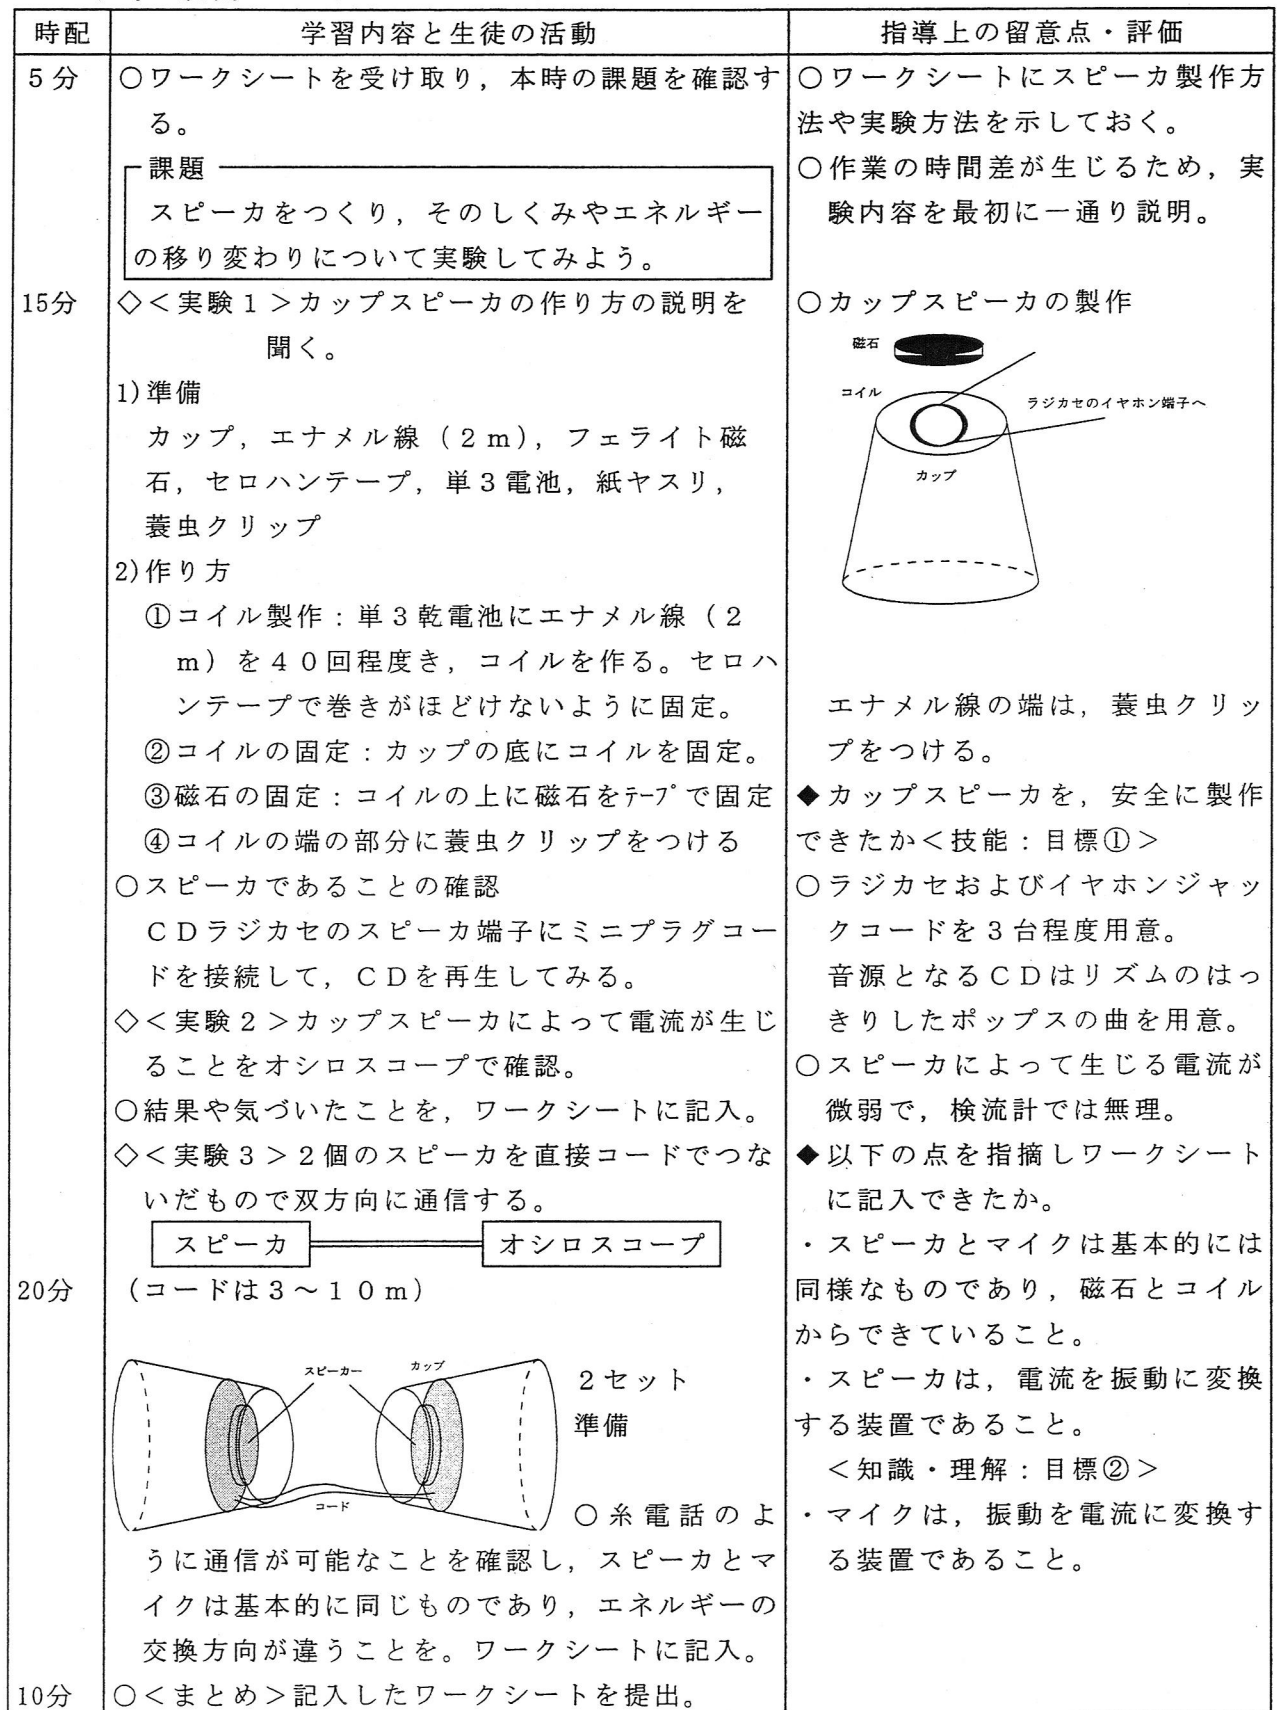 時配
学習内容と生徒の活動
指導上の留意点・評価
5分
○ワークシートを受け取り，本時の課題を確認す
る。
課題
スピーカをつくり，そのしくみやエネルギー
の移り変わりについて実験してみよう。
○ワークシートにスピーカ製作方
法や実験方法を示しておく。
○作業の時間差が生じるため，実
験内容を最初に一通り説明。
15分
◇＜実験１＞カップスピーカの作り方の説明を
聞く。
1)準備
カップ，エナメル線（２ｍ），フェライト磁
石，セロハンテープ，単３電池，紙ヤスリ，
蓑虫クリップ
2)作り方
①コイル製作：単３乾電池にエナメル線（２
ｍ）を４０回程度き，コイルを作る。セロハ
ンテープで巻きがほどけないように固定。
②コイルの固定：カップの底にコイルを固定。
③磁石の固定：コイルの上に磁石をﾃｰﾌﾟで固定
④コイルの端の部分に蓑虫クリップをつける
○スピーカであることの確認
ＣＤラジカセのスピーカ端子にミニプラグコー
ドを接続して，ＣＤを再生してみる。
◇＜実験２＞カップスピーカによって電流が生じ
ることをオシロスコープで確認。
○結果や気づいたことを，ワークシートに記入。
◇＜実験３＞２個のスピーカを直接コードでつな
いだもので双方向に通信する。
スピーカ
オシロスコープ
○カップスピーカの製作
磁石
コイル
ラジカセのイヤホン端子へ
カップ
エナメル線の端は，蓑虫クリッ
プをつける。
◆カップスピーカを，安全に製作
できたか＜技能：目標①＞
○ラジカセおよびイヤホンジャッ
クコードを３台程度用意。
音源となるＣＤはリズムのはっ
きりしたポップスの曲を用意。
○スピーカによって生じる電流が
微弱で，検流計では無理。
◆以下の点を指摘しワークシート
に記入できたか。
・スピーカとマイクは基本的には
同様なものであり，磁石とコイル
からできていること。
・スピーカは，電流を振動に変換
する装置であること。
＜知識・理解：目標②＞
・マイクは，振動を電流に変換す
る装置であること。
20分
（コードは３～１０ｍ）
スピーカー
カップ
コード
２セット
準備
○糸電話のよ
うに通信が可能なことを確認し，スピーカとマ
イクは基本的に同じものであり，エネルギーの
交換方向が違うことを。ワークシートに記入。
10分
○＜まとめ＞記入したワークシートを提出。